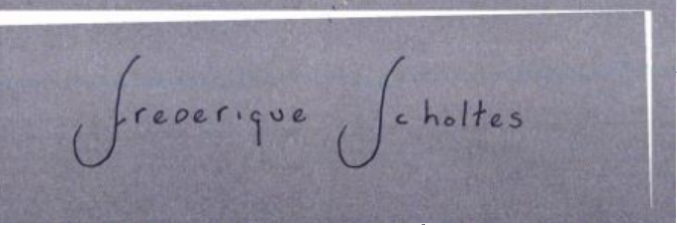 Frederique Scholtes